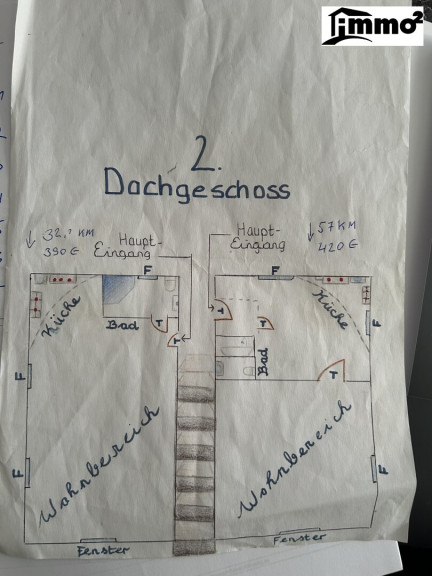 immo²
2.
Dachgeschoss
32,² KM
390 €
Haupt-
Eingang
Haupt-
Eingang
57 KM
420 €
F
F
Küche
Bad
T
T
T
T
Küche
F
F
Bad
T
F
Wohnbereich
Wohnbereich
F
F
Fenster
Fenster